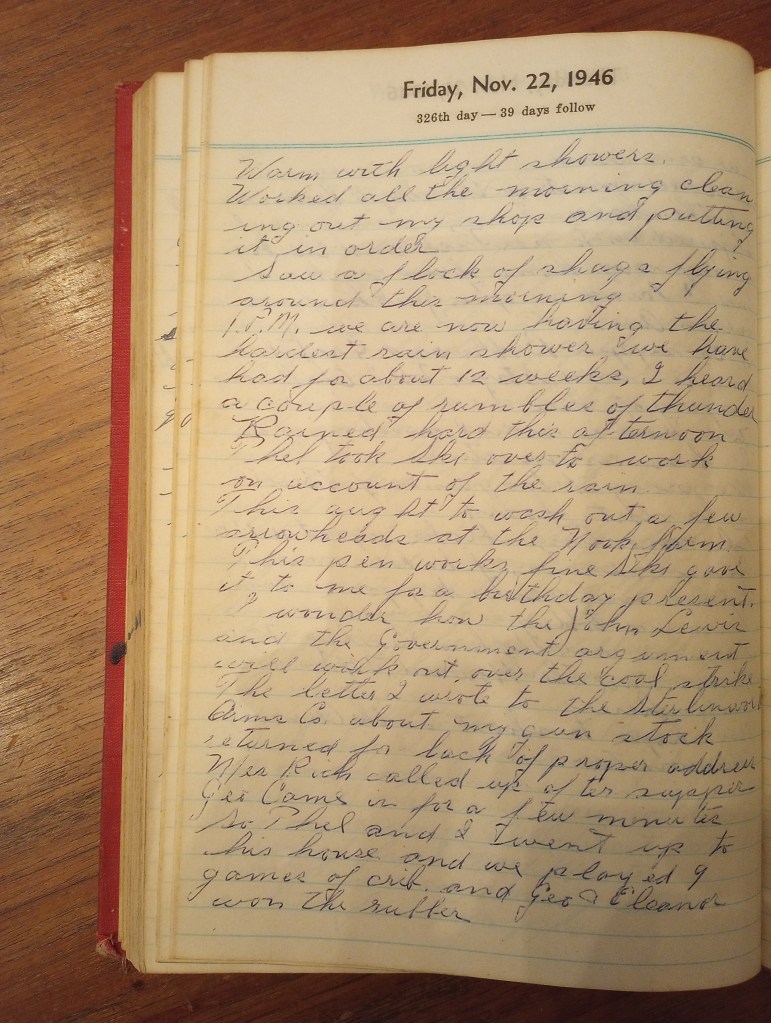 Friday, Nov. 22, 1946
326th day — 39 days follow
Warm with light showers.
Worked all the morning clean
ing out my shop and putting
it in order
Saw a flock of shags flying
around this morning
1.P.M. we are now having the
hardest rain shower we have
had for about 12 weeks, I heard
a couple of rumbles of thunder
Rained hard this afternoon
Phel took Ski over to work
on account of the rain
This aught to wash out a few
arrowheads at the Nook Farm.
This pen works fine Ski gave
it to me for a birthday present.
I wonder how the John Lewis
and the Government argument
will work out, over the coal strike
The letter I wrote to the
Arms Co. about my gun stock
returned for lack of proper address
Mrs Rich called up after supper
Geo Came in for a few menutes
So Phel and I went up to
his house and we played 9
games of crib. and Geo & Eleanor
won the rubber